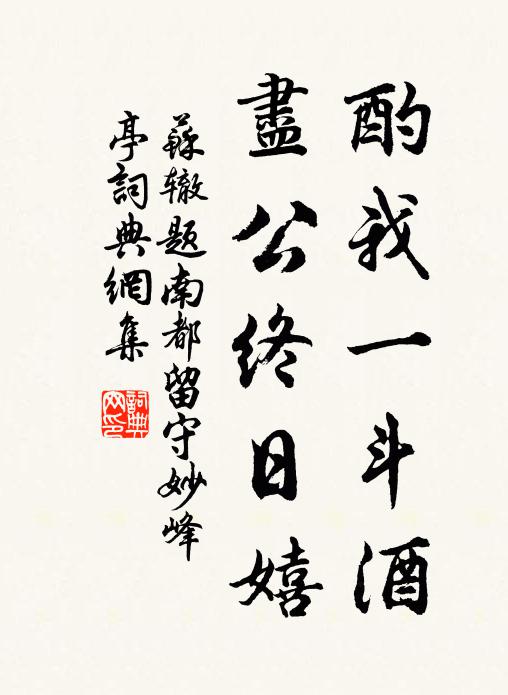 酌我一斗酒
盡公終日嬉
蘇轍題南都留守妙峰
亭詞典網集
詞典
网印